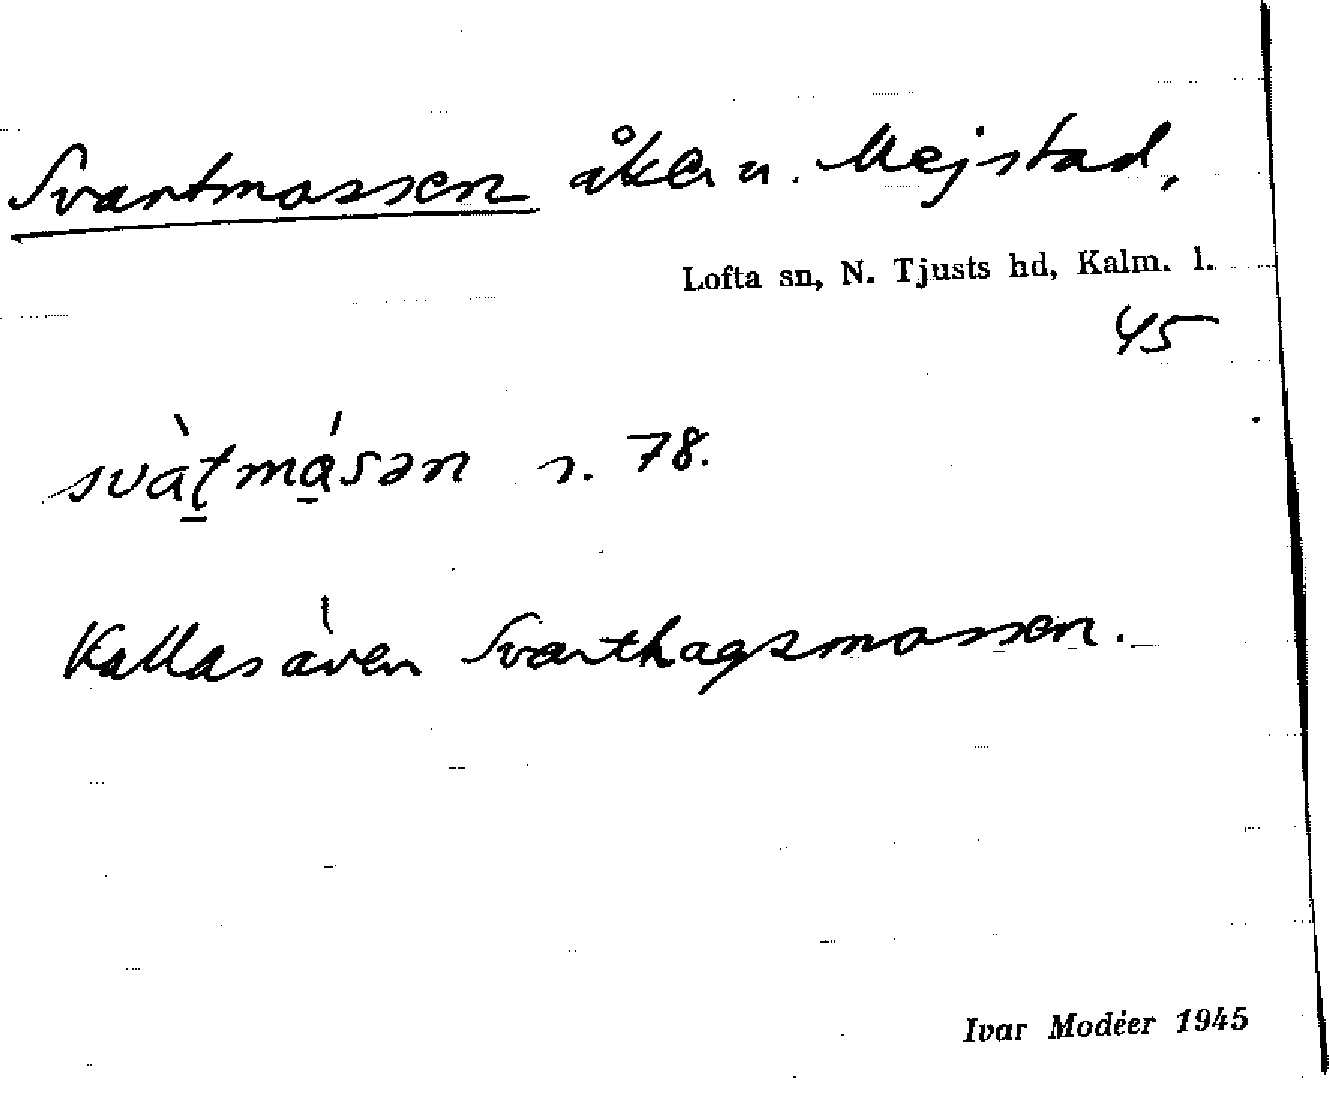 Svartmossen åker u. Mejstad,
Lofta sn, N. Tjusts hd, Kalm. l.
45
svàt̠má̠sən s. 78.
Kallas även Svarthagsmossen.
Ivar Modéer 1945